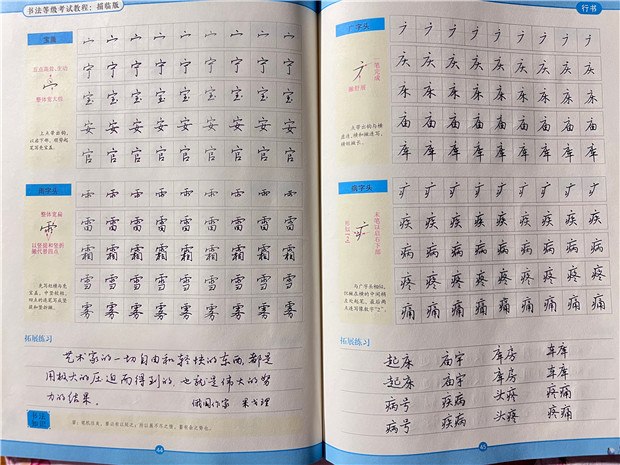 书法等级考试教程：描临版
宝盖
宀 宀 宀 宀 宀 宀 宀 宀 宀
宁 宁 宁 宁 宁 宁 宁 宁 宁
宝 宝 宝 宝 宝 宝 宝 宝 宝
安 安 安 安 安 安 安 安 安
官 官 官 官 官 官 官 官 官
整体宽大些
雨字头
整体宽扁
雷 雷 雷 雷 雷 雷 雷 雷 雷
霜 霜 霜 霜 霜 霜 霜 霜 霜
雪 雪 雪 雪 雪 雪 雪 雪 雪
雾 雾 雾 雾 雾 雾 雾 雾 雾
以竖提和竖折
拓展练习
艺术家的一切自由和轻快的东西，都是
用极大的压迫而得到的，也就是伟大的努
力的结果。 俄国作家 果戈理
书法
知识
44
行书
广字头
广 广 广 广 广 广 广 广 广
庆 庆 庆 庆 庆 庆 庆 庆 庆
床 床 床 床 床 床 床 床 床
庙 庙 庙 庙 庙 庙 庙 庙 庙
库 库 库 库 库 库 库 库 库
病字头
疒 疒 疒 疒 疒 疒 疒 疒 疒
疾 疾 疾 疾 疾 疾 疾 疾 疾
病 病 病 病 病 病 病 病 病
疼 疼 疼 疼 疼 疼 疼 疼 疼
痛 痛 痛 痛 痛 痛 痛 痛 痛
拓展练习
起床 庙宇 库房 车库
起床 庙宇 库房 车库
病号 疾病 头疼 疼痛
病号 疾病 头疼 疼痛
45